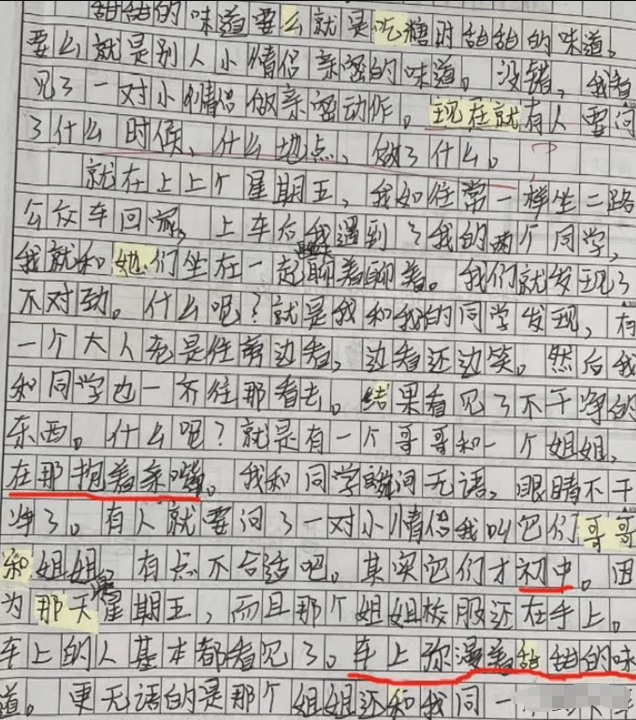 甜甜的味道要么就是吃糖时甜甜的味道。
要么就是别人小情侣亲密的味道。没错，我看
见了一对小情侣做亲密动作。现在就有人要问
了什么时候、什么地点、做了什么。?
就在上上个星期五，我如往常一样坐二路
公众车回家。上车后我遇到了我的两个同学，
我就和她们坐在一起聊着聊着。我们就发现了
不对劲。什么呢？就是我和我的同学发现，有
一个大人老是往旁边看，边看还边笑。然后我
和同学也一齐往那看去。结果看见了不干净的
东西。什么呢？就是有一个哥哥和一个姐姐，
在那抱着亲嘴。我和同学瞬间无语，眼睛不干
净了。有人就要问了一对小情侣我叫它们哥哥
和姐姐。有点不合适吧。其实它们才初中。因
为那天是星期五，而且那个姐姐校服还在手上。
车上的人基本都看见了。车上弥漫着甜甜的味
道。更无语的是那个姐姐还和我同一